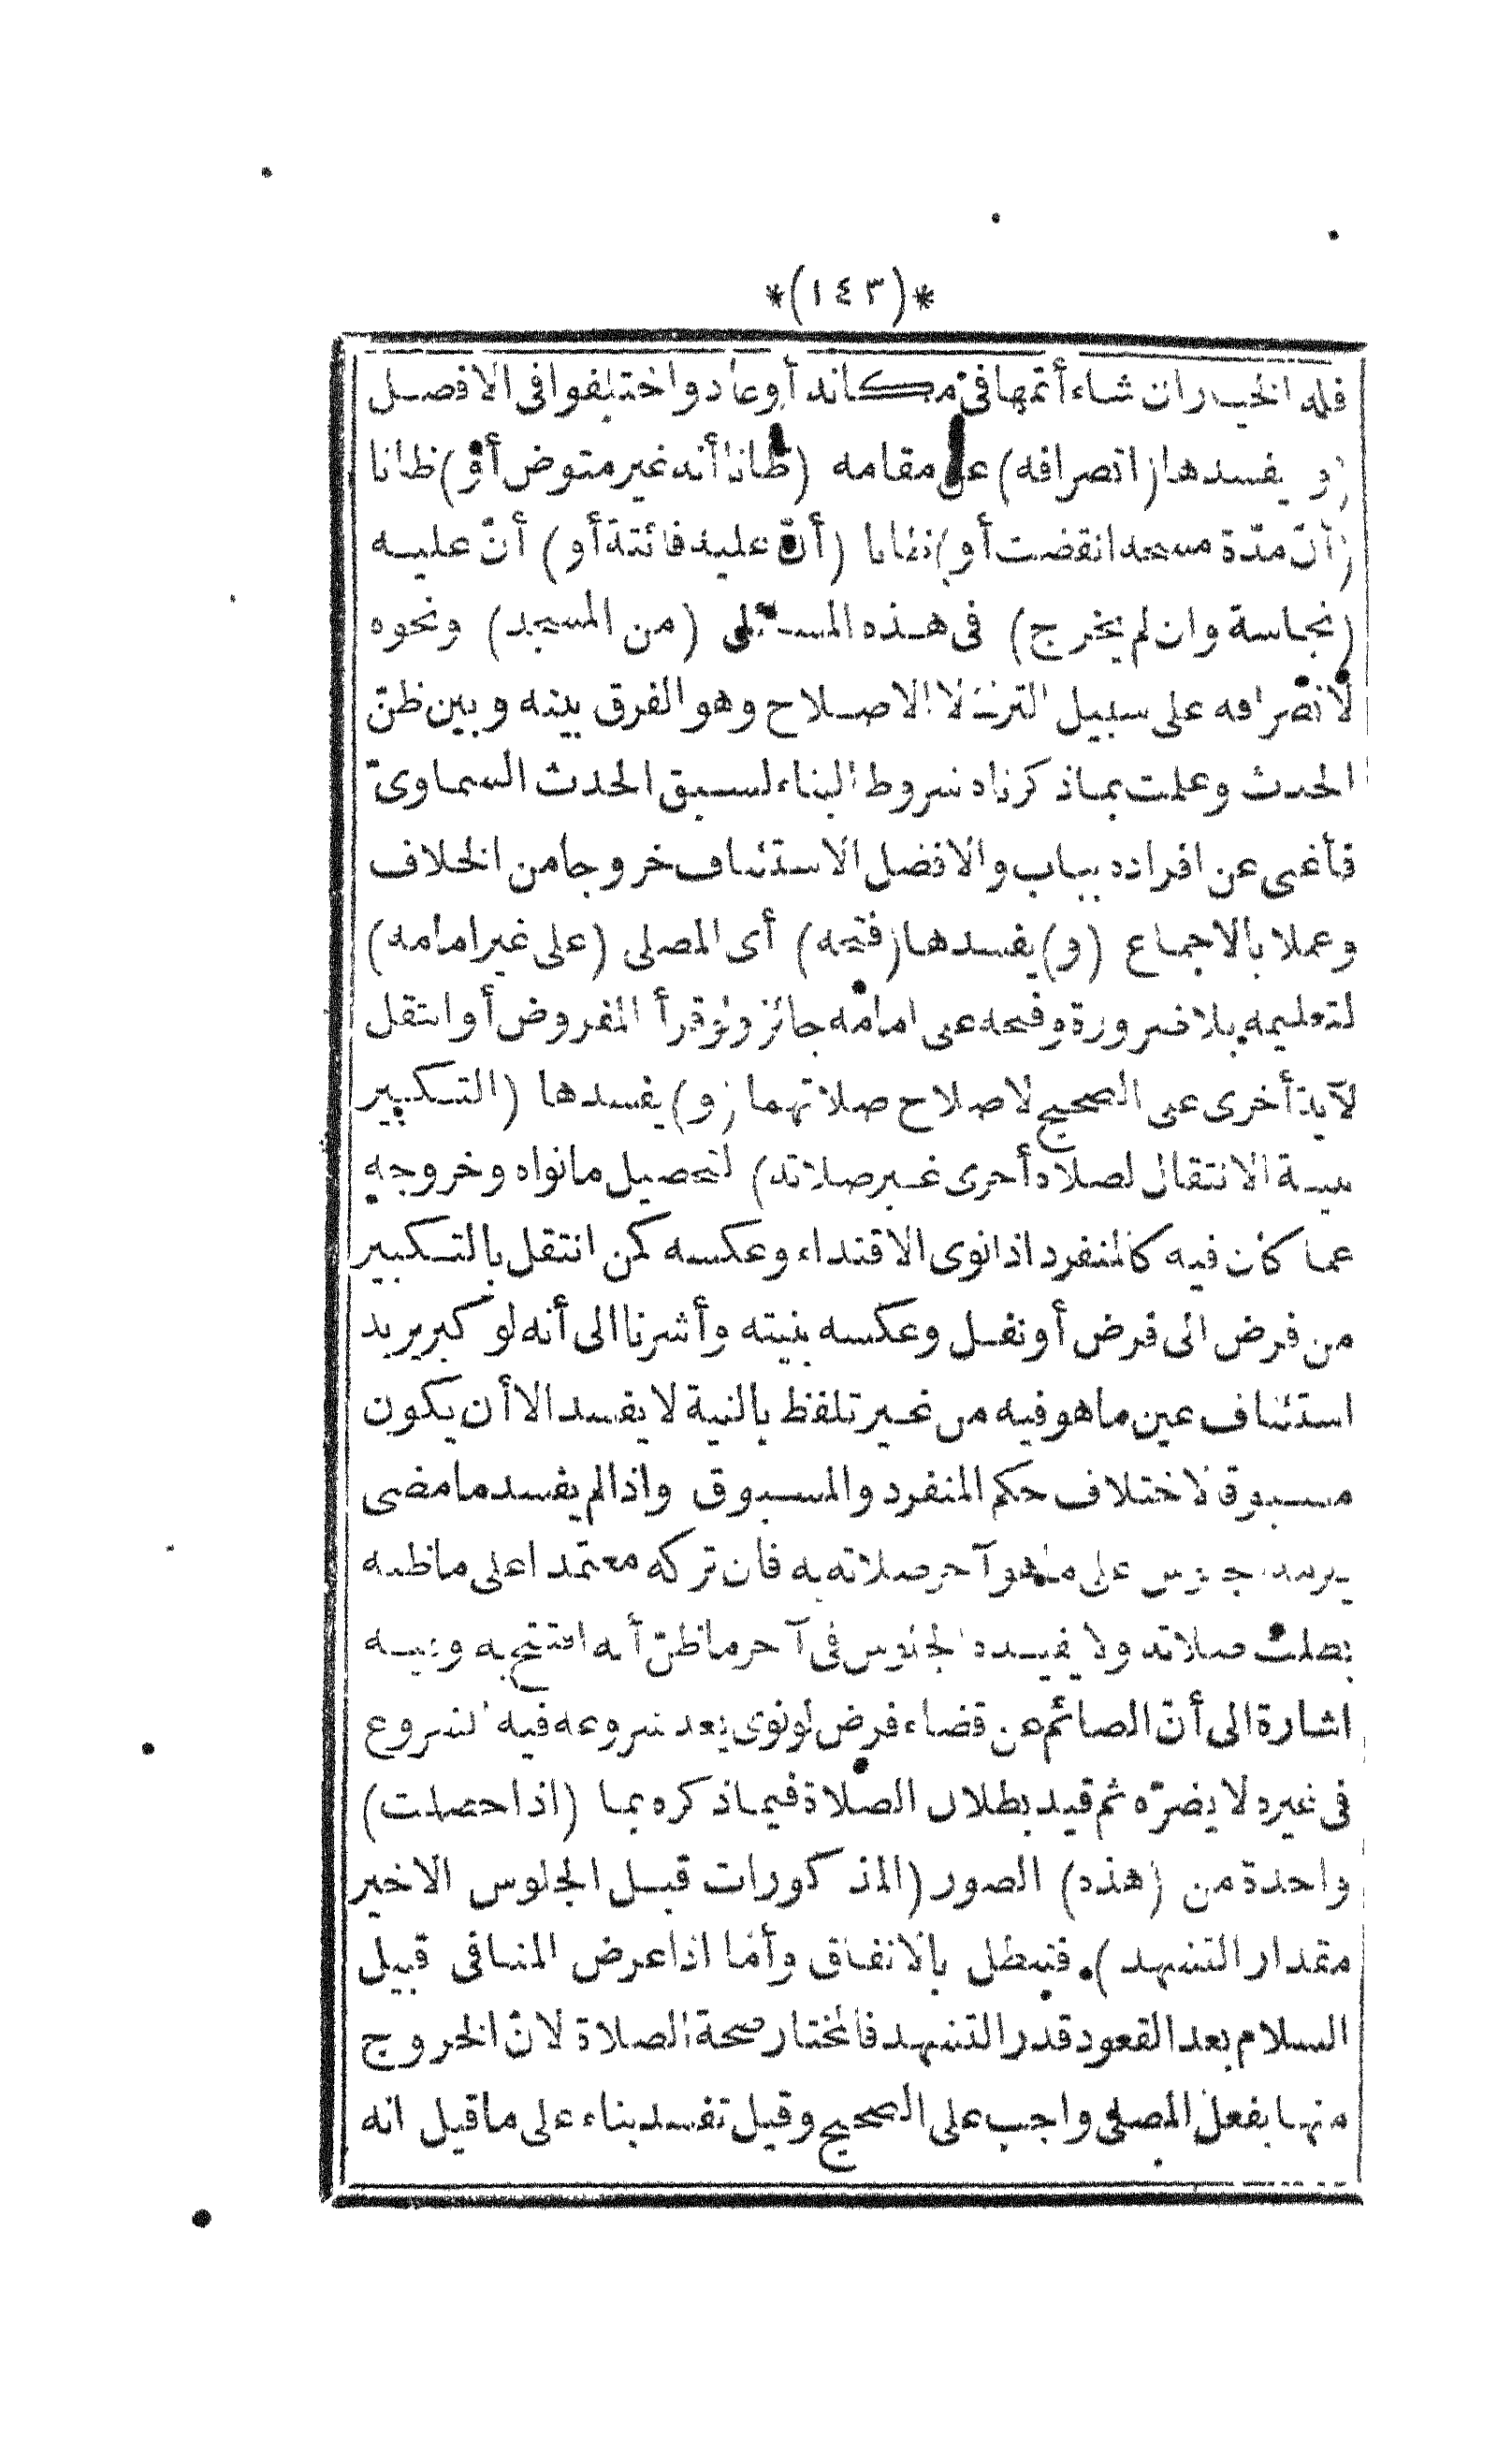 *(١٤٣)*
فله الخيار ان شاء أتمها في مكانه أو عاد واختلفوا في الافضل
(و) يفسدها (انصرافه) عن مقامه (ظانا أنه غير متوض أو) ظانا
(أنّ مدّة مسحه انقضت أو) ظانا (أنّ عليه فائتة أو) أنّ عليـه
(نجاسة وان لم يخرج) فى هـذه المسـائل (من المسجد) ونحوه
لانصرافه على سبيل الترك لا الاصـلاح وهو الفرق بينه وبين ظنّ
الحدث وعلمت بمـاذ كرناه شروط البناء لسـبق الحدث السماوىّ
فأغنى عن افراده ببـاب والافضل الاسـتئناف خروجا من الخلاف
وعملا بالاجمـاع (و) يفسـدهـا (فتحه) أى المصلى (على غير امامه)
لتعليمه بلا ضرورة وفتحه على امامه جائز ولو قرأ المفروض أو انتقل
لآية أخرى على الصحيح لاصلاح صلاتهما (و) يفسدها (التـكبير
بنيـة الانتقال لصلاة أخرى غـير صلاته) لتحصيل مانواه وخروجه
عمـا كان فيه كالمنفرد اذا نوى الاقتداء وعكسه كمن انتقل بالتـكبير
من فرض الى فرض أو نفـل وعكسه بنيته وأشرنا الى أنه لو كبر يريد
استئناف عين ماهو فيه من غـير تلفظ بالنية لا يفسد الا أن يكون
مسـبوقا لاختلاف حكم المنفرد والمسـبوق واذا لم يفسد مامضى
يلزمه الجلوس على ماهو آخر صلاته به فان تركه معتمدا على ماظنه
بطلت صلاته ولا يفيـده الجلوس فى آخر ماظنّ أنه افتتح به وفيـه
اشارة الى أنّ الصائم عن قضاء فرض لو نوى بعد شروعه فيه الشروع
فى غيره لا يضرّه ثم قيد بطلان الصلاة فيمـاذ كره بمـا (اذا حصلت)
واحدة من (هذه) الصور (المذ كورات قبـل الجلوس الاخير
مقدار التشهد). فتبطل بالاتفاق وأمّا اذا عرض المنـافى قبيل
السلام بعد القعود قدر التشهـد فالمختار صحة الصلاة لانّ الخروج
منهـا بفعل المصلى واجب على الصحيح وقيل تفسد بناء على ماقيل انه